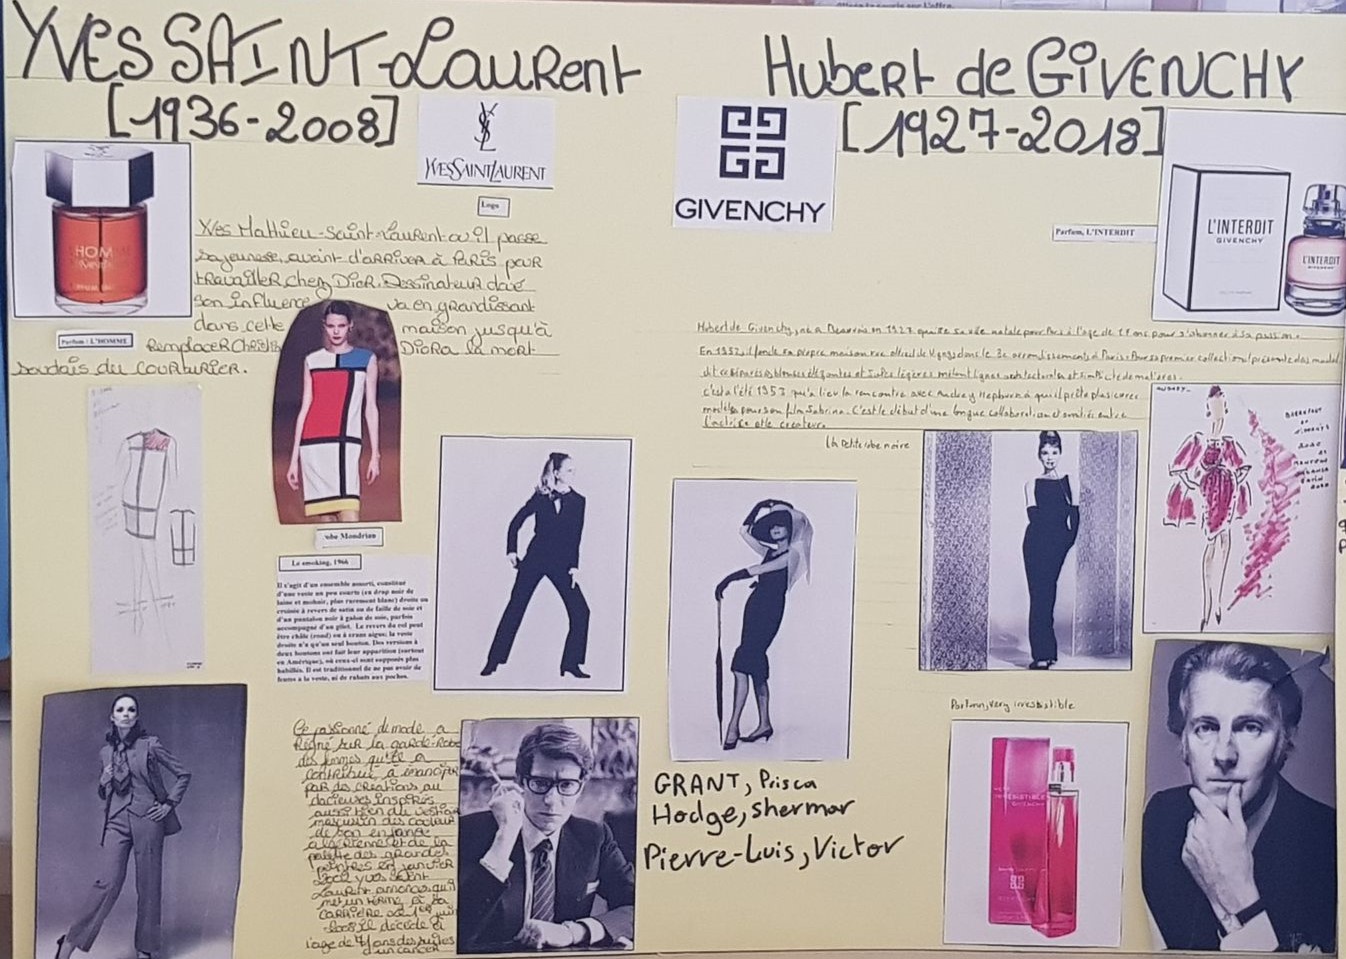 YVES SAINT-LAURENT
[1936-2008]
YSL
YVESSAINTLAURENT
Logo
Yves Mathieu-Saint-Laurent où il passe
sa jeunesse, avant d'arriver à Paris pour
travailler chez Dior. Dessinateur doué
son influence va en grandissant
dans cette maison jusqu'à
Remplacer Christian Diora la mort
soudais du courturier.
Parfum : L'HOMME
robe Mondrian
Le smoking, 1966
Il s'agit d'un ensemble assorti, constitué
d'une veste un peu courte (en drap noir de
laine et mohair, plus rarement blanc) droite ou
croisée à revers de satin ou de faille de soie et
d'un pantalon noir à galon de soie, parfois
accompagné d'un gilet. Le revers du col peut
être châle (rond) ou à crans aigus; la veste
droite n'a qu'un seul bouton. Des versions à
deux boutons ont fait leur apparition (surtout
en Amérique), où ceux-ci sont supposés plus
habillés. Il est traditionnel de ne pas avoir de
fentes à la veste, ni de rabats aux poches.
Ce passionné de mode a
Régné sur la garde-Robe
des femmes qu'il a
contribué à émanciper
par des créations au
dacieuses inspirés
aussi bien du vestiaire
masculin des couleurs
de son enfance
algérienne et de la
palette des grandes
peintres en janvier
Yves Saint
Laurent annonce qu'il
met un terme à sa
carrière
2008 il décède à
l'age de 71 ans des suites
d'un cancer
Hubert de GIVENCHY
[1927-2018]
GIVENCHY
Parfum, L'INTERDIT
L'INTERDIT
GIVENCHY
L'INTERDIT
Hubert de Givenchy, né à Beauvais en 1927 quitte sa ville natale pour Paris à l'age de 17 ans pour s'abonner à sa passion.
En 1952, il fonde sa propre maison rue Alfred de Vigny dans le 8e arrondissements à Paris. Pour sa premier collection il présente des
et jupes légères mêlant lignes architecturales et simplicité de matières.
c'est à l'été 1953 qu'a lieu la rencontre avec Audrey Hepburn à qui il prête plusieurs
modèles pour son film Sabrina. C'est le début d'une longue collaboration et amitié entre
l'actrice et le créateur.
La Petite robe noire
Parfum, very irresistible
GRANT, Prisca
Hodge, shermar
Pierre-Luis, Victor